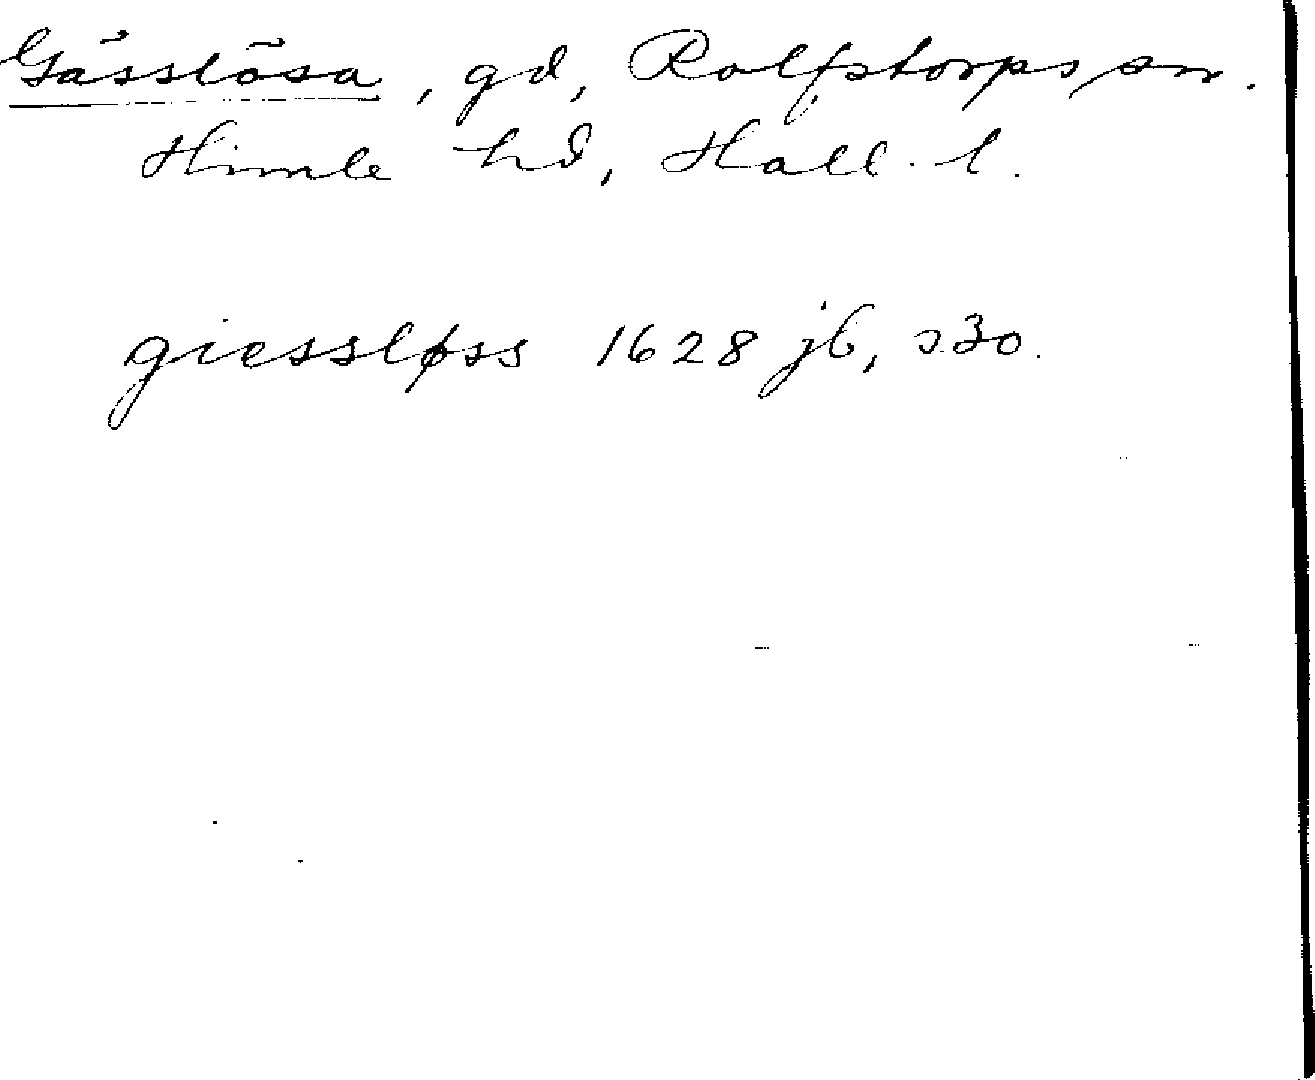 Gässlösa, gd, Rolfstorps sn.
Himle hd, Hall. l.
giessløss 1628 jb, s 30.